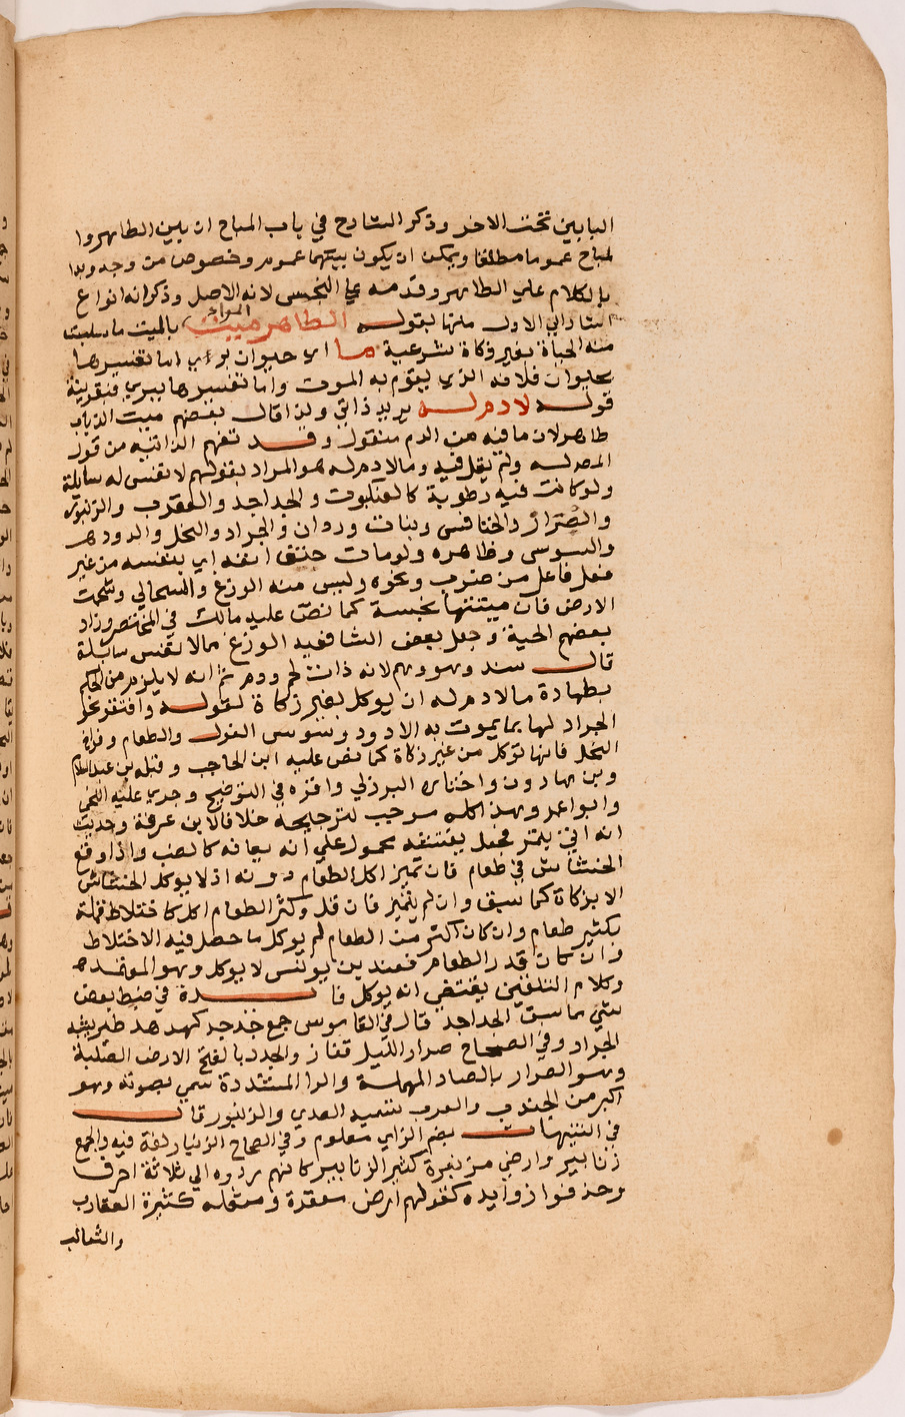 البابين تحت الاخر وذكر الشارح في باب المباح ان بين الطاهر وا
لمباح عموما مطلقا ويمكن ان يكون بينهما عموم وخصوص من وجه وبدا
بالكلام علي الطاهر وقدمه علي النجس لانه الاصل وذكر انه انواع
اشار الي الاول منها بقوله الطاهر ميت المراد بالميت ما سلبت
منه الحياة بغير ذكاة شرعية ما اي حيوان بري اما تفسيرها
بحيوان فلانه الذي يقوم به الموت واما تفسيرها ببري فبقرينة
قوله لا دم له يريد ذاتي ولذا قال بعضهم ميت الذباب
طاهر لان ما فيه من الدم منقول وقد تفهم الذاتية من قول
المص له ولم يقل فيه وما لا دم له هو المراد بقولهم لا نفس له سايلة
ولو كانت فيه رطوبة كالعنكبوت والجداجد والعقرب والزنبور
والصرار والخنافس وبنات وردان والجراد والنحل والدود
والسوس وظاهره ولو مات حتف انفه اي بنفسه من غير
فعل فاعل من ضرب ونحوه وليس منه الوزغ والسحالي وشحمة
الارض فان ميتتها نجسة كما نص عليه مالك في المختصر وزاد
بعضهم الحية وجعل بعض الشافعية الوزغ مما لا نفس سايلة
قال سند وهو وهم لانه ذات لحم ودم ثم انه لا يلزم من الحكم
بطهارة ما لا دم له ان يوكل بغير زكاة لقوله وافتقر نحو
الجراد لها بما يموت به الا دود وسوس الفول والطعام وفراخ
النحل فانها توكل من غير زكاة كما نص عليه ابن الحاجب وقبله بن عبد السلام
وبن هارون واختاره البرزلي واقره في التوضيح وجري عليه اللخمي
وابو اعمر وهذا كله موجب لترجيحه خلافا لابن عرفة وحديث
انه اتي بتمر فجعل يفتشه محمول علي انه يعافه كالضب واذا وقع
الخشاش في طعام فان تميز اكل الطعام دونه اذ لا يوكل الخشاش
الا بزكاة كما سبق وان لم يتميز فان قل وكثر الطعام اكل كاختلاط قملة
بكثير طعام وان كان اكثر من الطعام لم يوكل ما حصل فيه الاختلاط
وان كان قدر الطعام فعند بن يونس لا يوكل وهو المعتمد
وكلام التلقين يقتضي انه يوكل فايدة في ضبط بعض
شيء مما سبق الجداجد قال في القاموس جمع جدجد كهدهد طير يشبه
الجراد وفي الصحاح صرار الليل قفاز والجدد بالفتح الارض الصلبة
وهو الصرار بالصاد المهملة والرا المشددة سمي بصوته وهو
اكبر من الجندب والعرب تسميه الصدي والزنبور قال
في التنبيهات بضم الزاي معلوم وفي الصحاح الزنبار لغة فيه والجمع
زنابير وارض مزبرة كثير الزنابير كانهم ردوه الي ثلاثة احرف
وحذفوا زوايده كقولهم ارض معقرة ومثعلة كثيرة العقارب
والثعالب